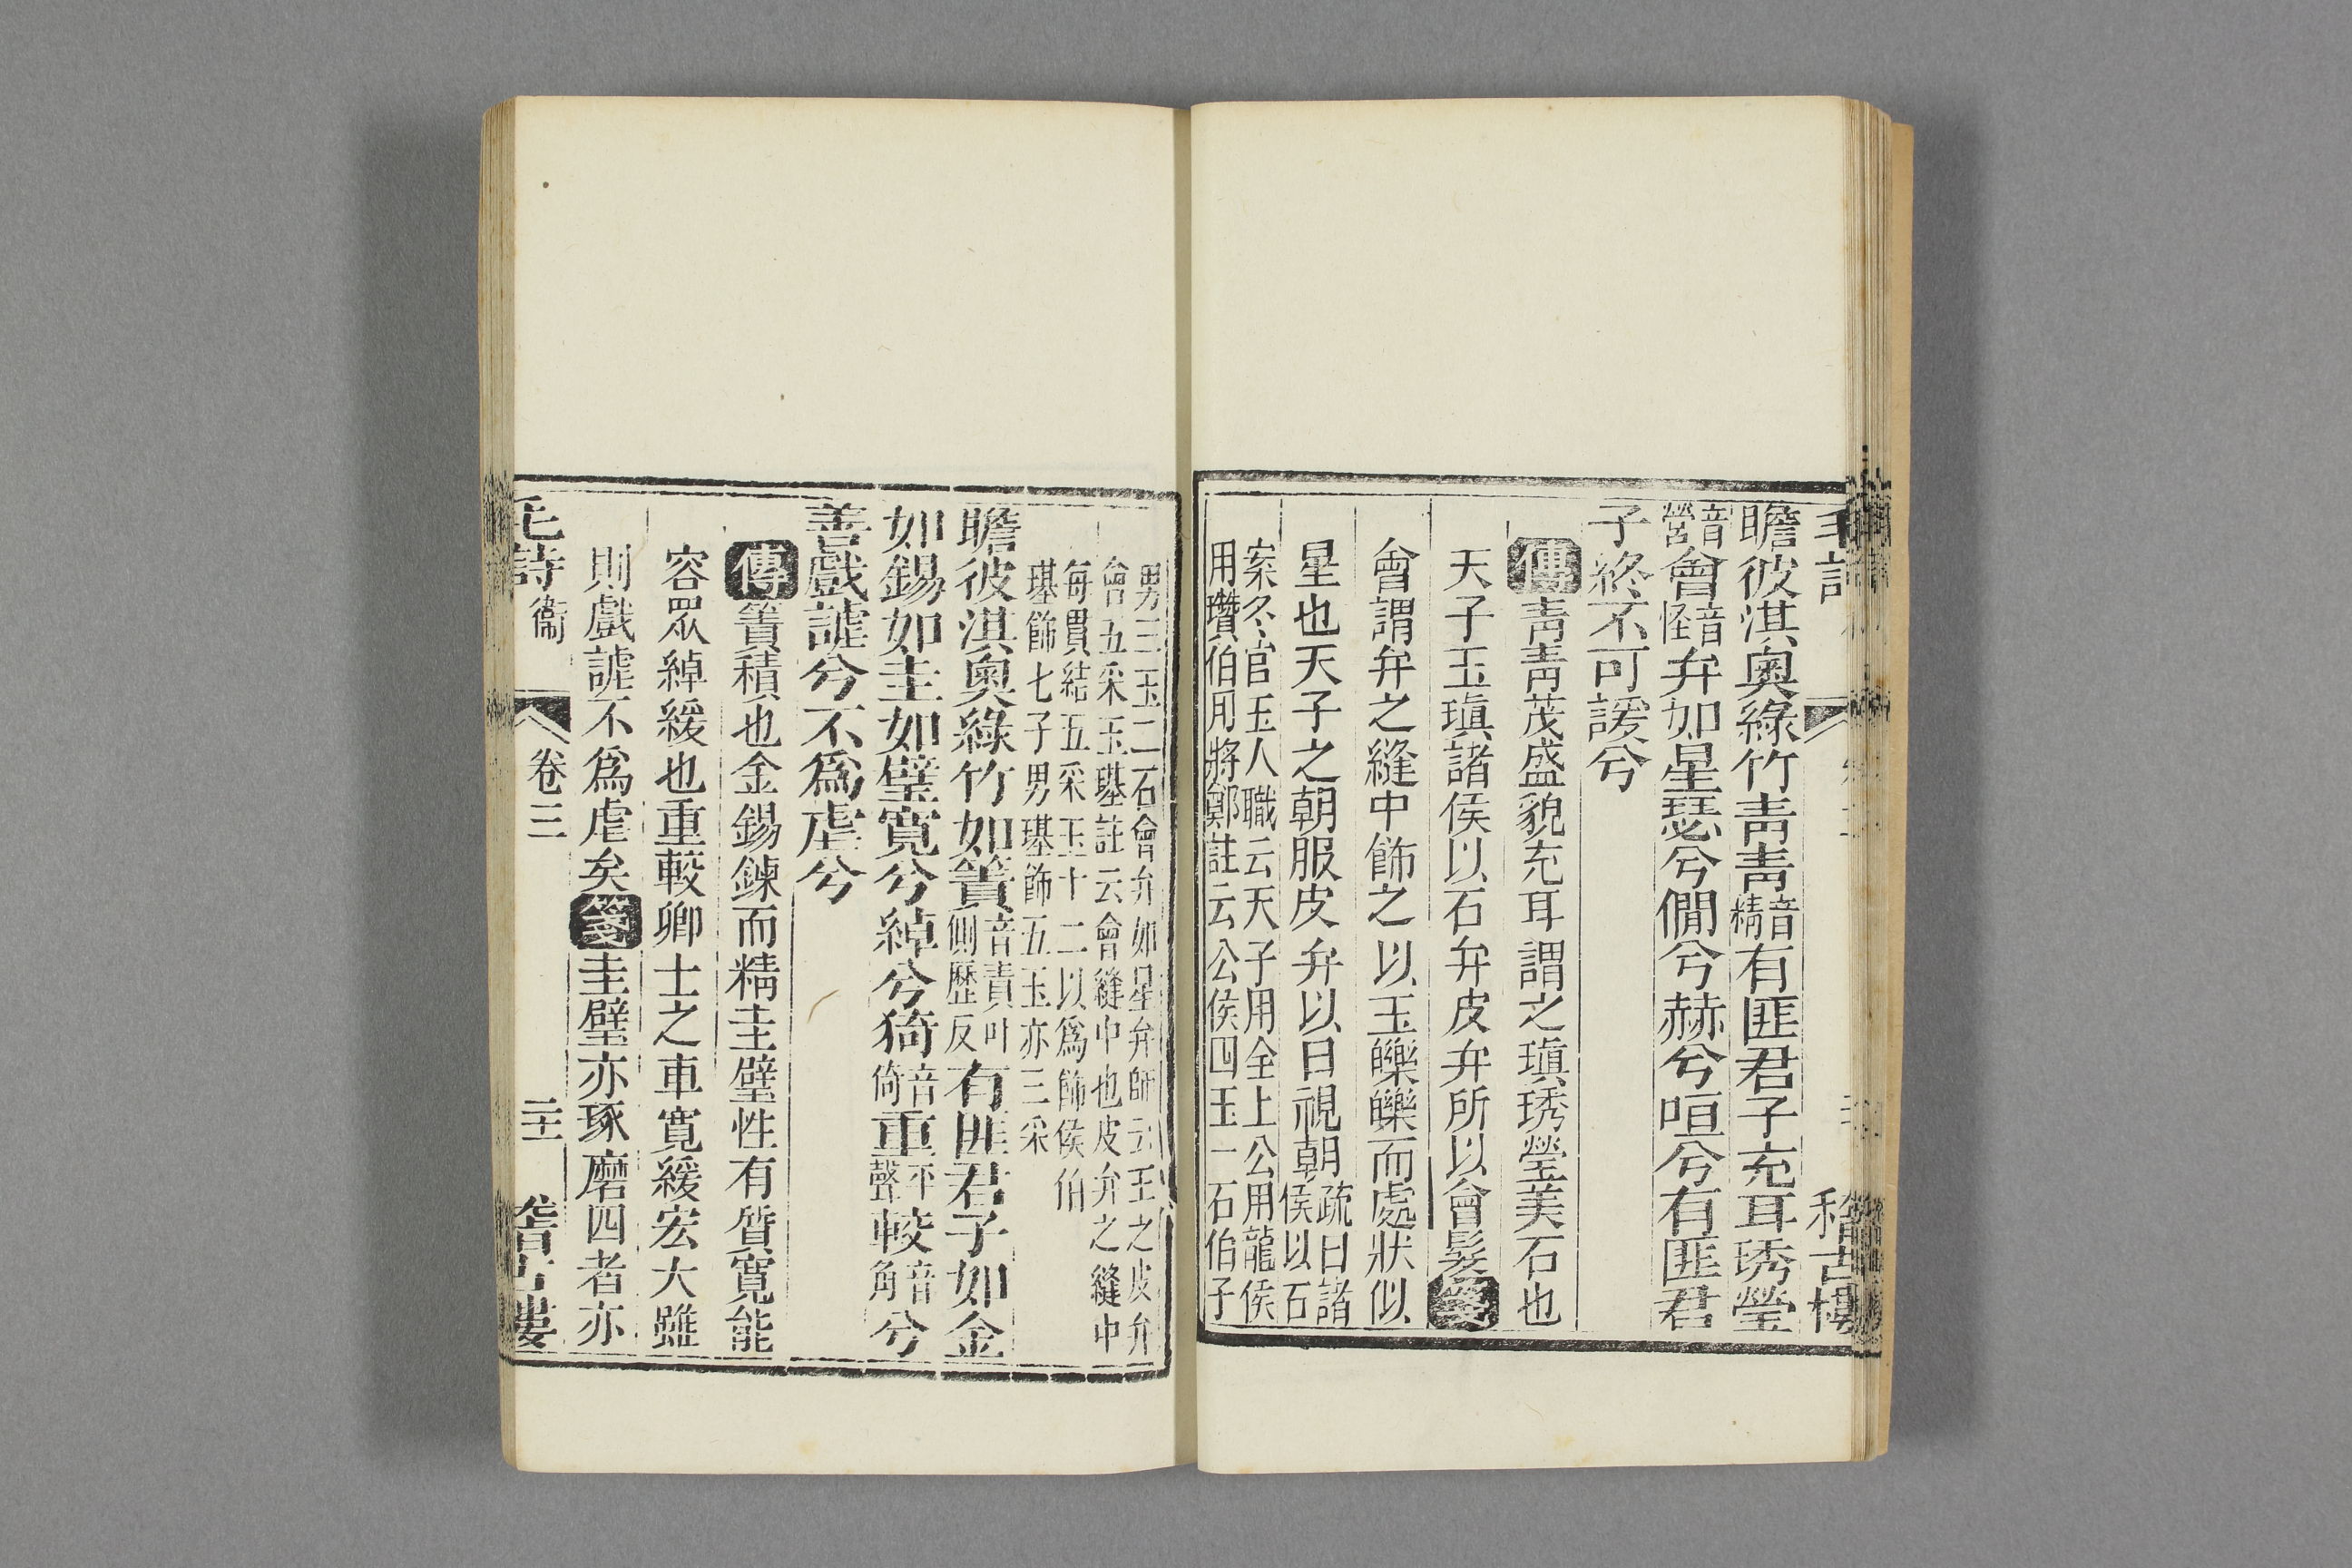 毛詩 稽古樓
瞻彼淇奧綠竹青青音精有匪君子充耳琇瑩
音營會音怪弁如星瑟兮僩兮赫兮咺兮有匪君
子終不可諼兮
傳青青茂盛貌充耳謂之瑱琇瑩美石也
天子玉瑱諸侯以石弁皮弁所以會髮箋
會謂弁之縫中飾之以玉皪皪而處狀似
星也天子之朝服皮弁以日視朝疏曰諸侯以石
案冬官玉人職云天子用全上公用龍侯
用瓚伯用將鄭註云公侯四玉一石伯子
男三玉二石會弁如星弁師云王之皮弁
會五采玉璂註云會縫中也皮弁之縫中
每貫結五采玉十二以爲飾侯伯
璂飾七子男璂飾五玉亦三采
瞻彼淇奧綠竹如簀音責叶側歷反有匪君子如金
如錫如圭如璧寬兮綽兮猗音倚重平聲較音角兮
善戲謔兮不爲虐兮
傳簀積也金錫鍊而精圭璧性有質寬能
容眾綽緩也重較卿士之車寬緩宏大雖
則戲謔不爲虐矣箋圭璧亦琢磨四者亦
毛詩 衞 卷三 稽古樓